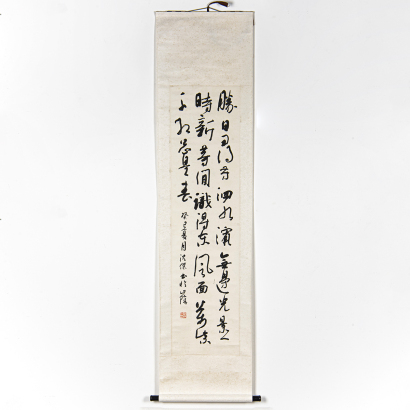 勝日尋芳泗水濱無邊光景一
時新等閒識得東風面萬紫
千紅總是春
癸月書於